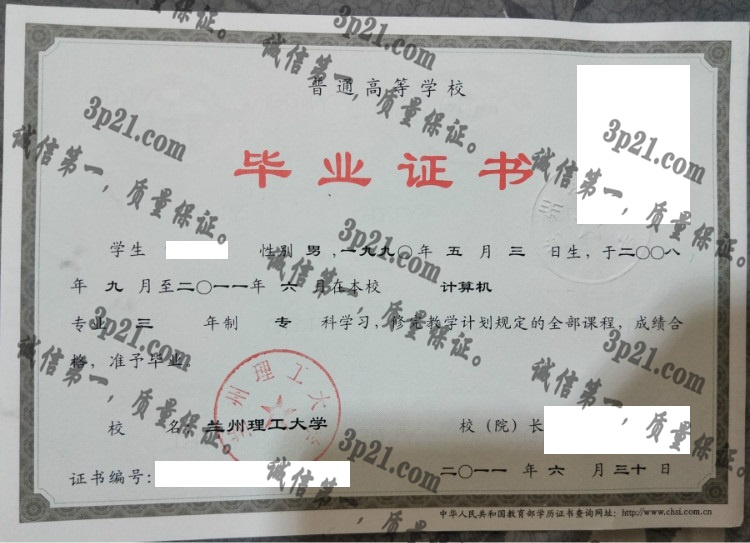 普通高等学校
毕业证书
学生 性别 男，一九九〇年 五 月 三 日生，于二〇〇八
年 九 月至二〇一一年 六 月在本校 计算机
专业 三 年制 专 科学习，修完教学计划规定的全部课程，成绩合
格，准予毕业。
校 名：兰州理工大学
校（院）长
证书编号：
二〇一一 年 六 月 三十 日
中华人民共和国教育部学历证书查询网址：http://www.chsi.com.cn
兰州理工大学
3p21.com
诚信第一，质量保证。
3p21.com
诚信第一，质量保证。
3p21.com
诚信第一，质量保证。
3p21.com
诚信第一，质量保证。
3p21.com
诚信第一，质量保证。
3p21.com
诚信第一，质量保证。
3p21.com
诚信第一，质量保证。
3p21.com
诚信第一，质量保证。